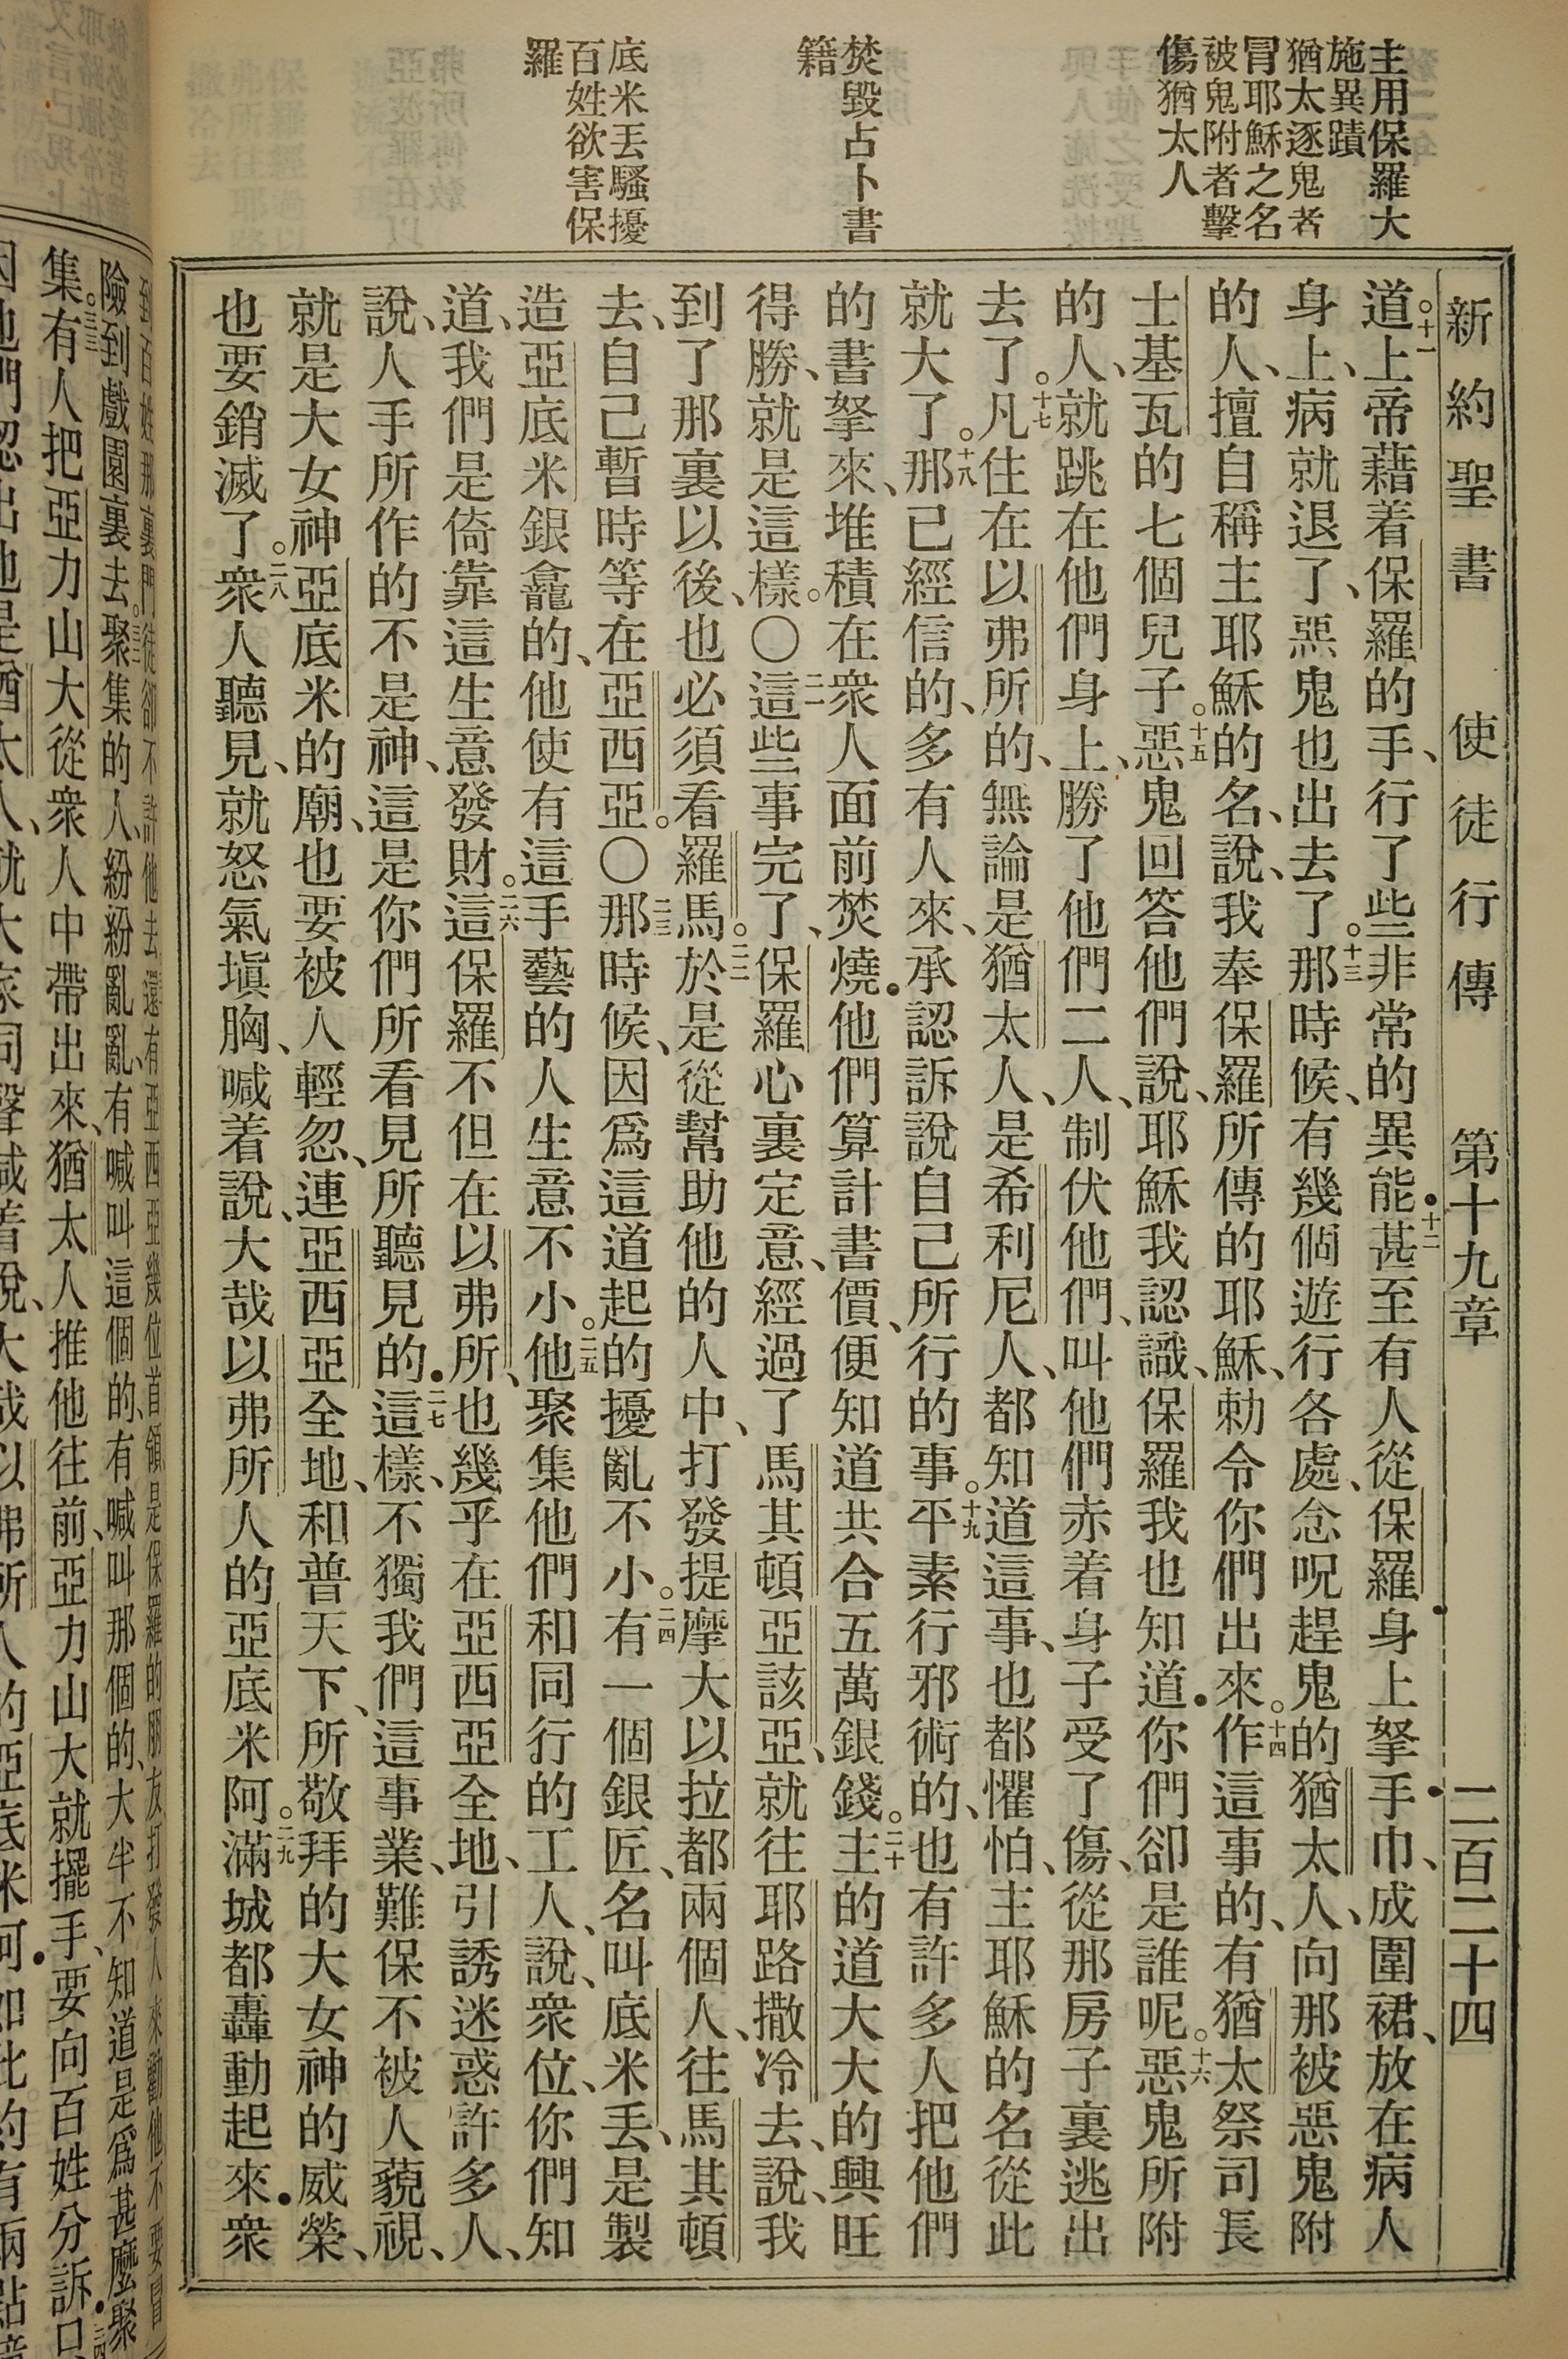 主用保羅大
施異蹟
猶太逐鬼者
冐耶穌之名
被鬼附者擊
傷猶太人
焚毀占卜書
籍
底米丟騷擾
百姓欲害保
羅
新約聖書 使徒行傳 第十九章 二百二十四
道。十一上帝藉着保羅的手、行了些非常的異能.十二甚至有人從保羅身上拏手巾、成圍裙、放在病人
身上、病就退了、惡鬼也出去了。十三那時候、有幾個遊行各處、念呪趕鬼的猶太人、向那被惡鬼附
的人、擅自稱主耶穌的名、說、我奉保羅所傳的耶穌、勅令你們出來。十四作這事的、有猶太祭司長
士基瓦的七個兒子。十五惡鬼回答他們說、耶穌我認識、保羅我也知道.你們卻是誰呢。十六惡鬼所附
的人、就跳在他們身上、勝了他們二人、制伏他們、叫他們赤着身子受了傷、從那房子裏逃出
去了。十七凡住在以弗所的、無論是猶太人、是希利尼人、都知道這事、也都懼怕、主耶穌的名從此
就大了。十八那已經信的、多有人來、承認訴說自己所行的事。十九平素行邪術的、也有許多人把他們
的書拏來、堆積在衆人面前焚燒.他們算計書價、便知道共合五萬銀錢。二十主的道大大的興旺
得勝、就是這樣。〇二一這些事完了、保羅心裏定意、經過了馬其頓亞該亞、就往耶路撒冷去、說、我
到了那裏以後、也必須看羅馬。二二於是從幫助他的人中、打發提摩大以拉都兩個人、往馬其頓
去、自己暫時等在亞西亞。〇二三那時候、因爲這道起的擾亂不小。二四有一個銀匠、名叫底米丟、是製
造亞底米銀龕的、他使有這手藝的人生意不小。二五他聚集他們和同行的工人、說、衆位、你們知
道、我們是倚靠這生意發財。二六這保羅不但在以弗所、也幾乎在亞西亞全地、引誘迷惑許多人、
說、人手所作的不是神、這是你們所看見所聽見的.二七這樣、不獨我們這事業、難保不被人藐視、
就是大女神亞底米的廟、也要被人輕忽、連亞西亞全地、和普天下、所敬拜的大女神的威榮、
也要銷滅了。二八衆人聽見、就怒氣塡胸、喊着說、大哉以弗所人的亞底米阿。二九滿城都轟動起來.衆
到百姓那裏門徒卻不許他去還有亞西亞幾位首領是保羅的朋友打發人來勸他不要冒
險到戲園裏去。聚集的人、紛紛亂亂、有喊叫這個的、有喊叫那個的、大半不知道是爲甚麼聚
集。三三有人把亞力山大從衆人中帶出來、猶太人推他往前、亞力山大就擺手、要向百姓分訴.
因他們認出他是猶太人、就大家同聲喊着說、大哉以弗所人的亞底米阿.如此約有兩點